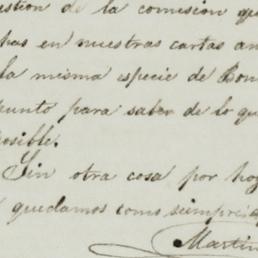 estion de la comision que
has en nuestras cartas an
la misma especie de Bon
punto para saber de lo que
osible.
Sin otra cosa por hoy
quedamos como siempre
Martin